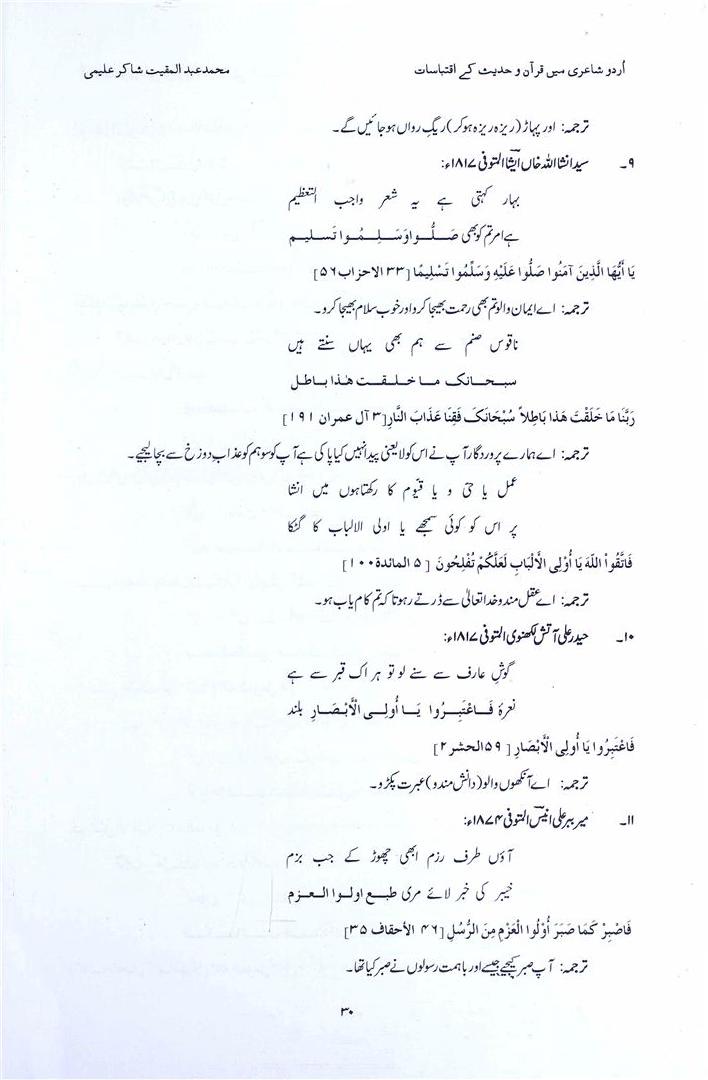 اُردو شاعری میں قرآن و حدیث کے اقتباسات
محمد عبد المقیت شاکر علیمی
ترجمہ: اور پہاڑ (ریزہ ریزہ ہو کر) ریگِ رواں ہو جائیں گے۔
۹۔ سید انشا اللہ خاں انشا المتوفی ۱۸۱۷ء:
بہار کہتی ہے یہ شعر واجب التعظیم
ہے امر تم کو بھی صَلُّوا وَسَلِّمُوا تَسلیم
یَا أَیُّهَا الَّذِینَ آمَنُوا صَلُّوا عَلَیْهِ وَسَلِّمُوا تَسْلِیمًا [۳۳ الاحزاب ۵۶]
ترجمہ: اے ایمان والو تم بھی رحمت بھیجا کرو اور خوب سلام بھیجا کرو۔
ناقوس صنم سے ہم بھی یہاں سنتے ہیں
سبحانک ما خلقت هٰذا باطل
رَبَّنَا مَا خَلَقْتَ هَذا بَاطِلاً سُبْحَانَکَ فَقِنَا عَذَابَ النَّارِ [۳ آل عمران ۱۹۱]
ترجمہ: اے ہمارے پروردگار آپ نے اس کو لایعنی پیدا نہیں کیا پاکی ہے آپ کو سو ہم کو عذاب دوزخ سے بچا لیجیے۔
عمل یا حیّ و یا قیّوم کا رکھتا ہوں میں انشا
پر اس کو کوئی سمجھے یا اولی الالباب کا گٹکا
فَاتَّقُواْ اللّهَ یَا أُوْلِی الْأَلْبَابِ لَعَلَّکُمْ تُفْلِحُونَ [۵ المائدة ۱۰۰]
ترجمہ: اے عقل مندو خدا تعالیٰ سے ڈرتے رہو تاکہ تم کام یاب ہو۔
۱۰۔ حیدر علی آتش لکھنوی المتوفی ۱۸۱۷ء:
گوشِ عارف سے سنے لو تو ہر اک قبر سے ہے
نعرۂ فَاعْتَبِرُوا یَا أُولِی الْأَبْصَارِ بلند
فَاعْتَبِرُوا یَا أُولِی الْأَبْصَارِ [۵۹ الحشر ۲]
ترجمہ: اے آنکھوں والو (دانش مندو) عبرت پکڑو۔
۱۱۔ میر ببر علی انیس المتوفی ۱۸۷۴ء:
آؤں طرف رزم ابھی چھوڑ کے جب بزم
خیبر کی خبر لائے مری طبع اولوا العزم
فَاصْبِرْ کَمَا صَبَرَ أُوْلُوا الْعَزْمِ مِنَ الرُّسُلِ [۴۶ الأحقاف ۳۵]
ترجمہ: آپ صبر کیجیے جیسے اور باہمت رسولوں نے صبر کیا تھا۔
۳۰